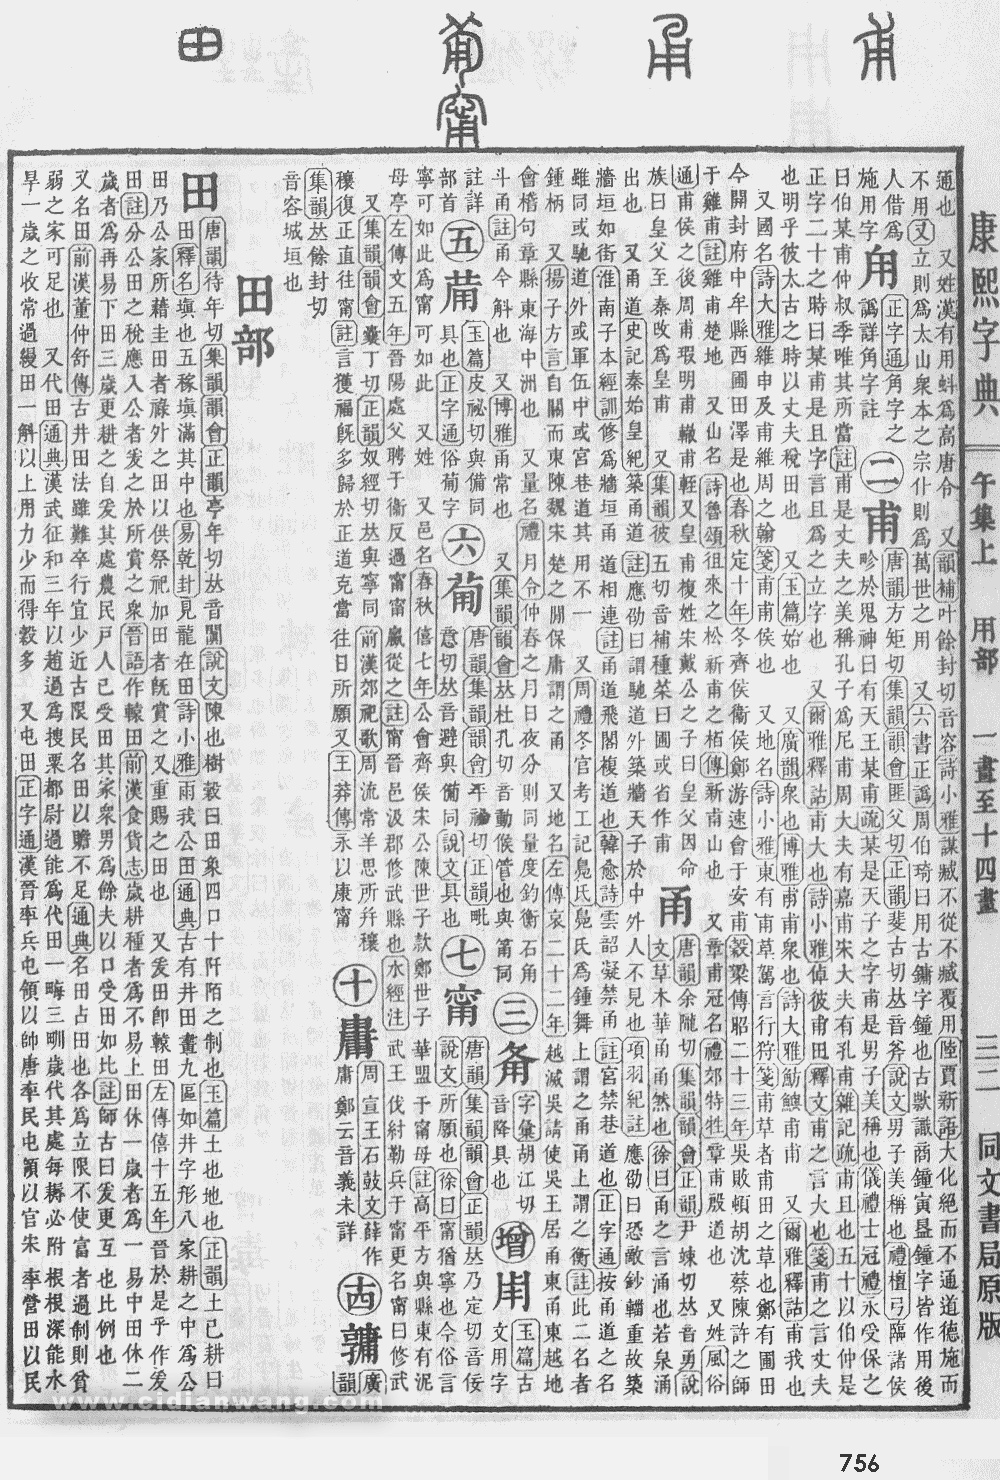 康熙字典 午集上 用部 一畫至十四畫 三二 同文書局原版
通也 又姓漢有用蚪爲高唐令 又韻補叶餘封切音容詩小雅謀臧不從不臧覆用陸賈新語大化絕而不通道德施而
不用又立則爲太山衆本之宗仆則爲萬世之用 又六書正譌周伯琦曰用古鏞字鐘也古款識商鐘寅簋鐘字皆作用後
人借爲施用字 甪 正字通角字之譌詳角字註 二 甫 唐韻方矩切集韻韻會匪父切正韻斐古切𠀤音斧說文男子美稱也禮檀弓臨諸侯
畛於鬼神曰有天王某甫疏某是天子之字甫是男子美稱也儀禮士冠禮永受保之
曰伯某甫仲叔季唯其所當註甫是丈夫之美稱孔子爲尼甫周大夫有嘉甫宋大夫有孔甫雜記疏甫且也五十以伯仲是
正字二十之時曰某甫是且字言且爲之立字也 又爾雅釋詁甫大也詩小雅倬彼甫田釋文甫之言大也箋甫之言丈夫
也明乎彼太古之時以丈夫稅田也 又玉篇始也 又廣韻衆也博雅甫甫衆也詩大雅魴鱮甫甫 又爾雅釋詁甫我也
又國名詩大雅維申及甫維周之翰箋甫甫侯也 又地名詩小雅東有甫草駕言行狩箋甫草者甫田之草也鄭有圃田
今開封府中牟縣西圃田澤是也春秋定十年冬齊侯衞侯鄭游速會于安甫穀梁傳昭二十三年吳敗頓胡沈蔡陳許之師
于雞甫註雞甫楚地 又山名詩魯頌徂來之松新甫之栢傳新甫山也 又章甫冠名禮郊特牲章甫殷道也 又姓風俗
通甫侯之後周甫瑕明甫轍甫軫又皇甫複姓宋戴公之子曰皇父因命
族曰皇父至秦改爲皇甫 又集韻彼五切音補種菜曰圃或省作甫 甬 唐韻余隴切集韻韻會正韻尹竦切𠀤音勇說
文草木華甬甬然也徐曰甬之言涌也若泉涌
出也 又甬道史記秦始皇紀築甬道註應劭曰謂馳道外築牆天子於中外人不見也項羽紀註應劭曰恐敵鈔輜重故築
牆垣如街淮南子本經訓修爲牆垣甬道相連註甬道飛閣複道也韓愈詩雲韶凝禁甬註宮禁巷道也正字通按甬道之名
雖同或馳道外或軍伍中或宮巷道其用不一 又周禮冬官考工記鳧氏鳧氏爲鍾舞上謂之甬甬上謂之衡註此二名者
鍾柄 又揚子方言自關而東陳魏宋楚之閒保庸謂之甬 又地名左傳哀二十二年越滅吳請使吳王居甬東甬東越地
會稽句章縣東海中洲也 又量名禮月令仲春之月日夜分則同量度鈞衡石角
斗甬註甬今斛也 又博雅甬常也 又集韻韻會𠀤杜孔切音動 管也與筩同 三 字彙胡江切音降具也 增 玉篇古文用字
註詳部首 五 玉篇皮祕切與備同具也正字通俗葡字 六 葡 唐韻集韻韻會平祕切正韻毗意切𠀤音避與備同說文具也 七 甯 唐韻集韻韻會正韻𠀤乃定切音佞
說文所願也徐曰甯猶寧也今俗言
寧可如此爲甯可如此 又姓 又邑名春秋僖七年公會齊侯宋公陳世子款鄭世子華盟于甯母註高平方與縣東有泥
母亭左傳文五年晉陽處父聘于衞反過甯甯嬴從之註甯晉邑汲郡修武縣也水經注武王伐紂勒兵于甯更名甯曰修武
又集韻韻會囊丁切正韻奴經切𠀤與寧同前漢郊祀歌周流常羊思所幷穰
穰復正直往甯註言獲福旣多歸於正道克當往日所願又王莽傳永以康甯 十 周宣王石鼓文薛作庸鄭云音義未詳 廣韻
集韻𠀤餘封切
音容城垣也
田部
田 唐韻待年切集韻韻會正韻亭年切𠀤音闐說文陳也樹穀曰田象四口十阡陌之制也玉篇土也地也正韻土已耕曰
田釋名塡也五稼塡滿其中也易乾封見龍在田詩小雅雨我公田通典古有井田畫九區如井字形八家耕之中爲公
田乃公家所藉圭田者祿外之田以供祭祀加田者旣賞之又重賜之田也 又爰田卽轅田左傳僖十五年晉於是乎作爰
田註分公田之稅應入公者爰之於所賞之衆晉語作轅田前漢食貨志歲耕種者爲不易上田休一歲者爲一易中田休二
歲者爲再易下田三歲更耕之自爰其處農民戸人已受田其家衆男爲餘夫以口受田如比註師古曰爰更互也比例也
又名田前漢董仲舒傳古井田法雖難卒行宜少近古限民名田以贍不足通典名田占田也各爲立限不使富者過制則貧
弱之家可足也 又代田通典漢武征和三年以趙過爲捜粟都尉過能爲代田一畮三甽歲代其處每耨必附根根深能水
旱一歲之收常過縵田一斛以上用力少而得穀多 又屯田正字通漢晉率兵屯領以帥唐率民屯領以官宋率營田以民
www.cidianwang.com
756